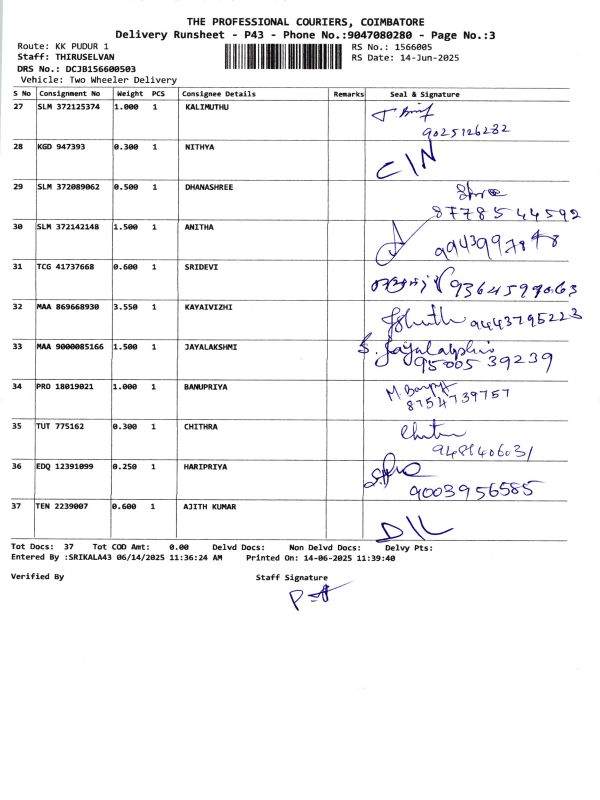 THE PROFESSIONAL COURIERS, COIMBATORE
Delivery Runsheet - P43 - Phone No.:9047080280 - Page No.:3
Route: KK PUDUR 1 RS No.: 1566005
Staff: THIRUSELVAN RS Date: 14-Jun-2025
DRS No.: DCJB156600503
Vehicle: Two Wheeler Delivery
S No Consignment No Weight PCS Consignee Details Remarks Seal & Signature
27 SLM 372125374 1.000 1 KALIMUTHU
9025126282
28 KGD 947393 0.300 1 NITHYA
29 SLM 372089062 0.500 1 DHANASHREE
8778544592
30 SLM 372142148 1.500 1 ANITHA
31 TCG 41737668 0.600 1 SRIDEVI
32 MAA 869668930 3.550 1 KAYAIVIZHI 9443795223
33 MAA 9000085166 1.500 1 JAYALAKSHMI
9500539239
34 PRO 18019021 1.000 1 BANUPRIYA
8754739757
35 TUT 775162 0.300 1 CHITHRA
36 EDQ 12391099 0.250 1 HARIPRIYA
9003956585
37 TEN 2239007 0.600 1 AJITH KUMAR
Tot Docs: 37 Tot COD Amt: 0.00 Delvd Docs: Non Delvd Docs: Delvy Pts:
Entered By :SRIKALA43 06/14/2025 11:36:24 AM Printed On: 14-06-2025 11:39:40
Verified By Staff Signature